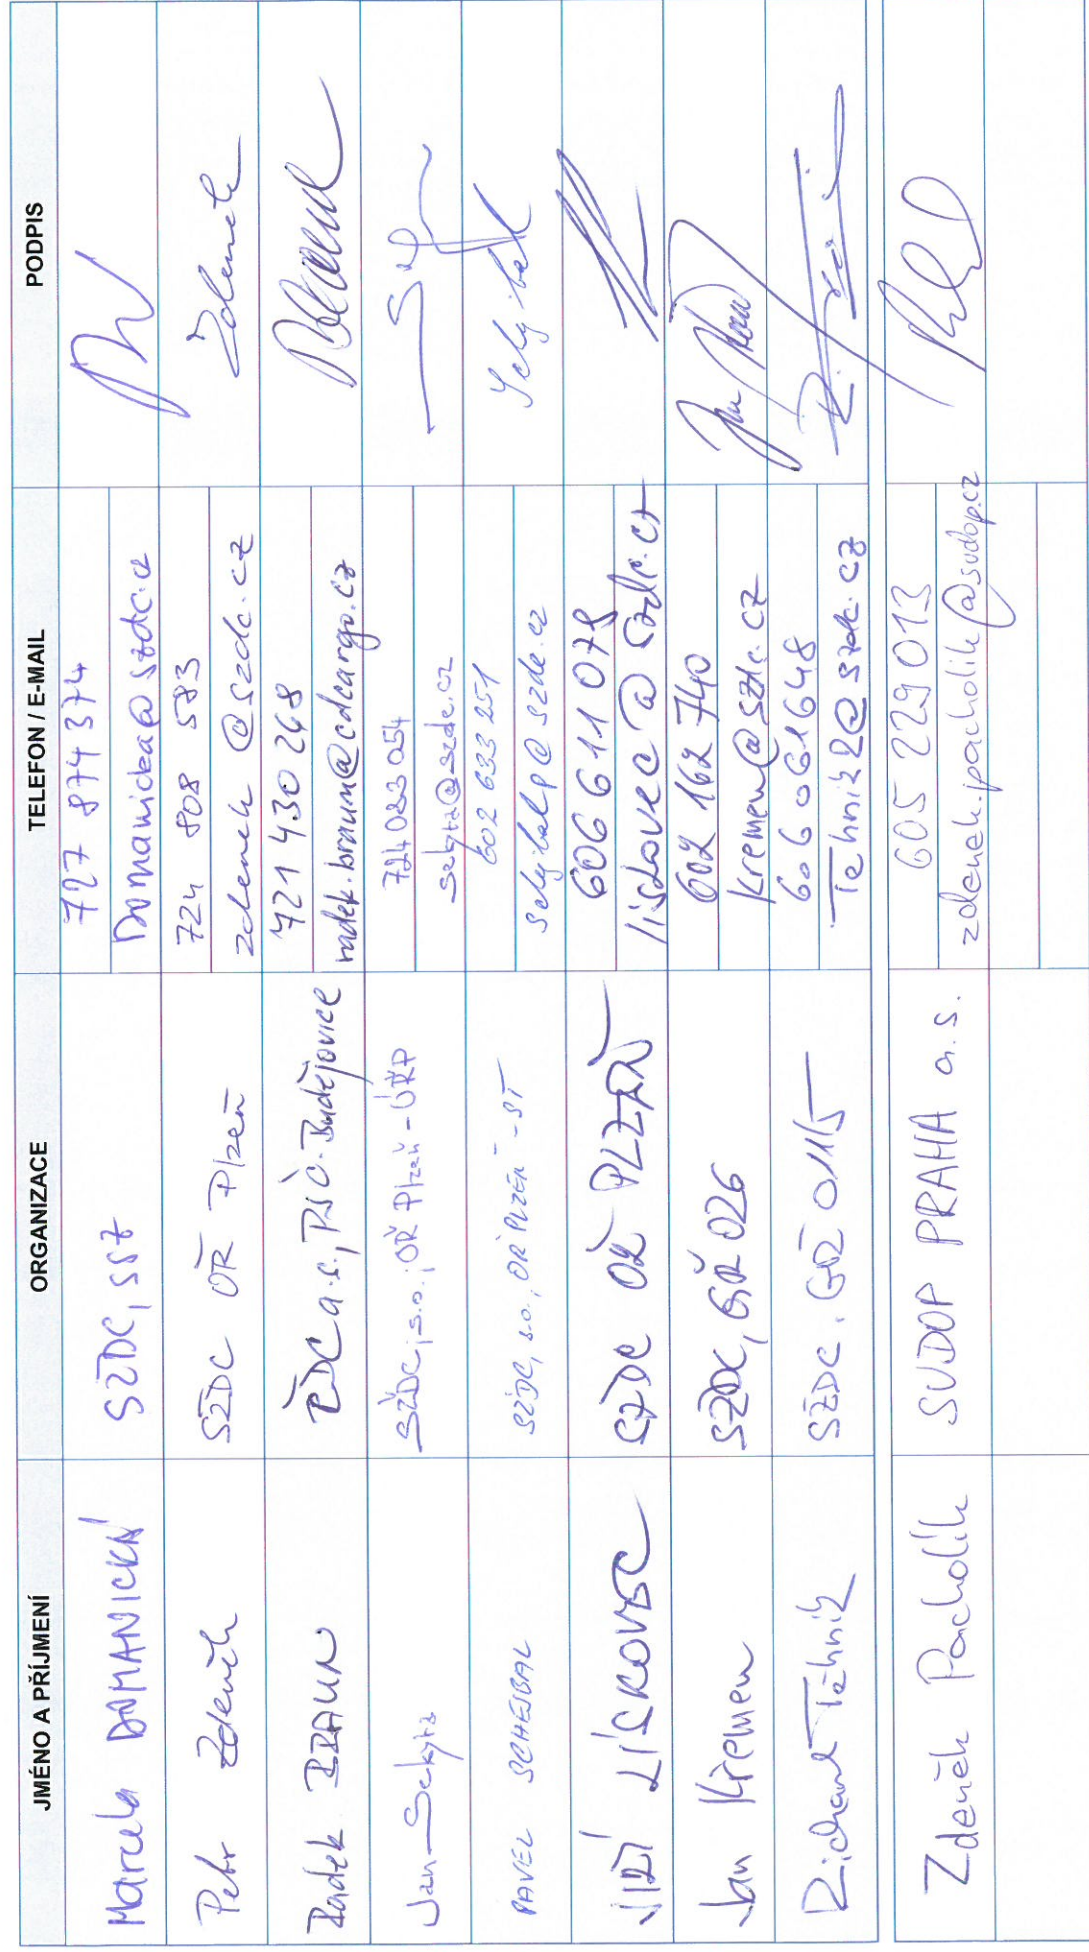 JMÉNO A PŘÍJMENÍ ORGANIZACE TELEFON / E-MAIL PODPIS
Marcela DOMANICKÁ SŽDC, SSZ 727 874 374
Domanicka@szdc.cz
Petr Zdeněk SŽDC OŘ Plzeň 724 808 583
zdenek@szdc.cz Zdenek
Radek BRAUN ČDC a.s., PSČ-Budějovice 721 430 268
radek.braun@cdcargo.cz
Jan Sekyra SŽDC, s.o., OŘ Plzeň - ÚŘP 724 023 054
sekyra@szdc.cz
PAVEL SCHEJBAL SŽDC, s.o., OŘ PLZEŇ - ST 602 633 251
schejbalp@szdc.cz Schejbal
JIŘÍ LÍSKOVEC SŽDC OŘ PLZEŇ 606 611 078
liskovec@szdc.cz
Jan Křemen SŽDC, GŘ O26 602 162 740
kremen@szdc.cz
Richard Těhník SŽDC, GŘ O11/5 606 061 648
Tehnik@szdc.cz
Zdeněk Pacholík SUDOP PRAHA a.s. 605 229 013
zdenek.pacholik@sudop.cz